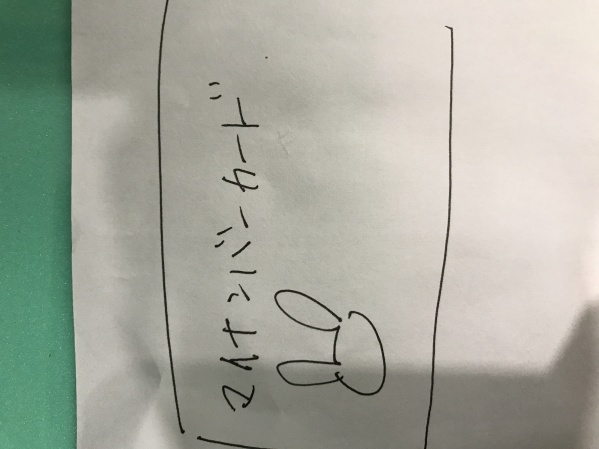 マイナンバーカード